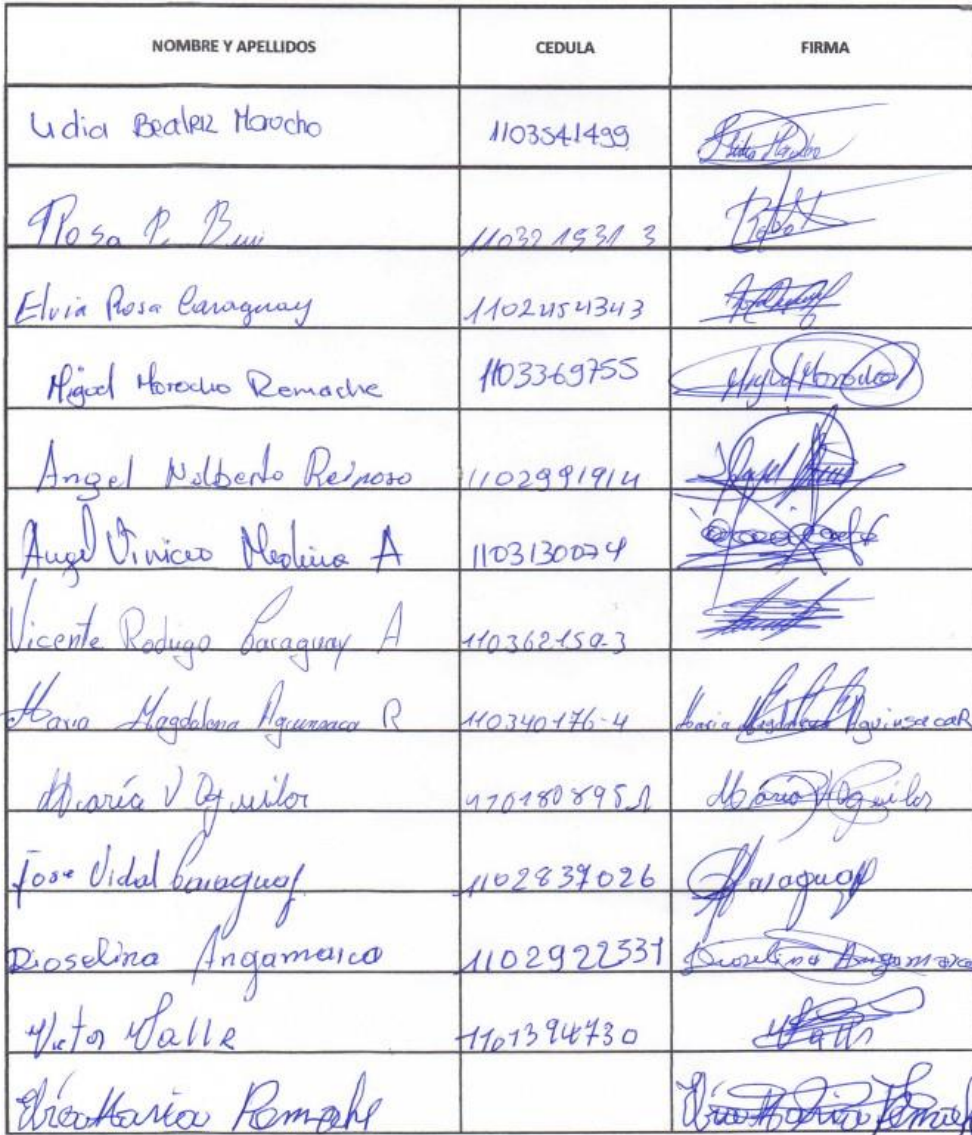 NOMBRE Y APELLIDOS CEDULA FIRMA
Lidia Beatriz Morocho 1103541499
Rosa P. Buri 110321931 3
Elvia Rosa Caraguay 1102454343
Miguel Morocho Remache 1103369755 Miguel Morocho
Angel Nolberto Reinoso 1102991914
Angel Vinicio Medina A 1103130074
Vicente Rodrigo Caraguay A 110362159-3
Maria Magdalena Aguinsaca R 110340176-4 Maria Magdalena Aguinsaca R
María V Aguilar María V Aguilar
Jose Vidal Caraguay 1102837026 Caraguay
Dioselina Angamarca 1102922331 Dioselina Angamarca
Victor Valle 1101394730 Valle
María Remache